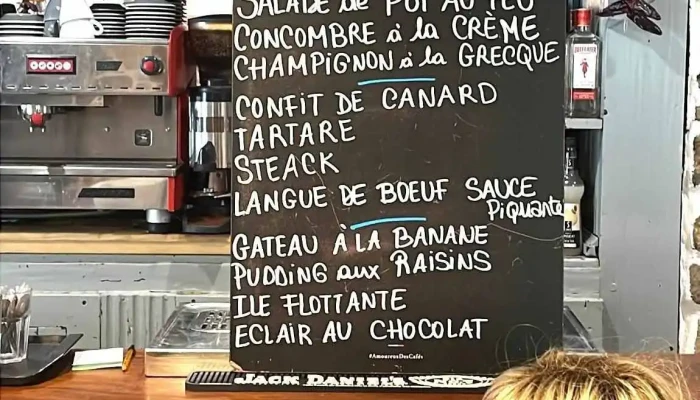 SALADE de POT AU FEU
CONCOMBRE à la CRÈME
CHAMPIGNON à la GRECQUE
CONFIT DE CANARD
TARTARE
STEACK
LANGUE DE BOEUF SAUCE
PiQuante
GATEAU À LA BANANE
PUDDING aux RAISINS
ILE FLOTTANTE
ECLAIR AU CHOCOLAT
#AmoureuxDesCafés
JACK DANIEL'S
BEEFEATER